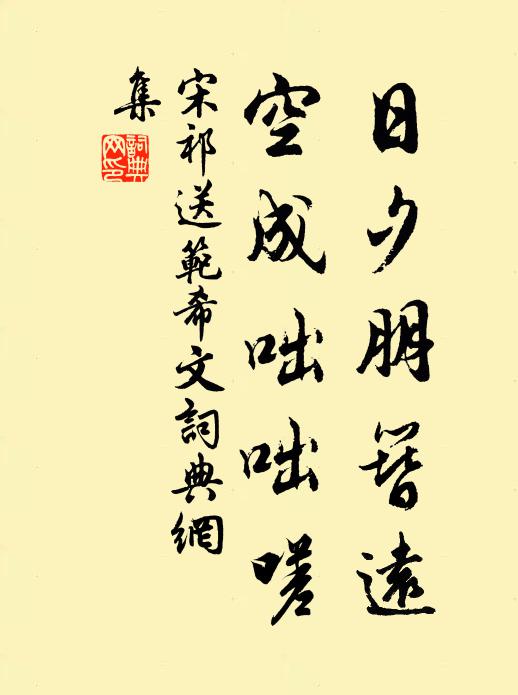 日夕朋簪遠
空成咄咄嗟
宋祁送範希文詞典網
集
詞典
网印